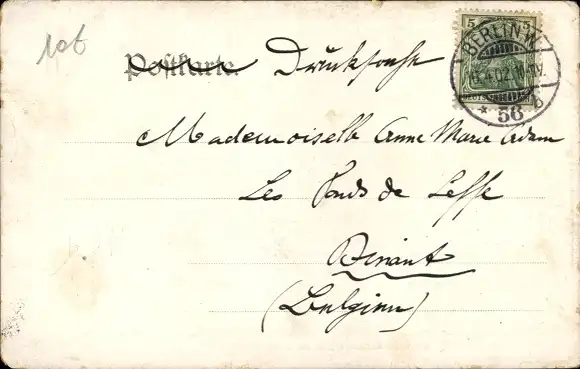 106
Postkarte. Drucksache
5 5
BERLIN.W.
4.02.
* 56 b
Mademoiselle Anne Marie Adam
Les Fonds de Leffe
Dinant
(Belgien)